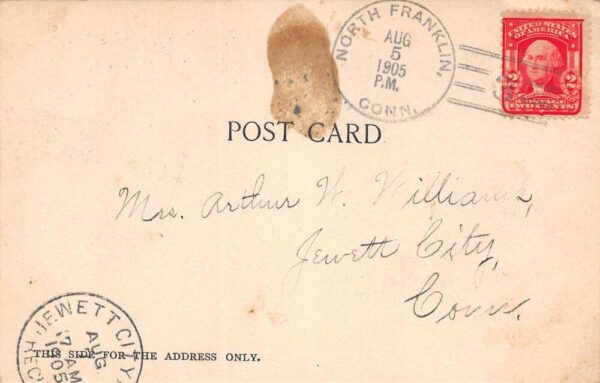 NORTH FRANKLIN,
AUG
5
1905
P.M.
CONN.
UNITED STATES
OF AMERICA
2 2
TWO CENTS
POST CARD
Mrs. Arthur W. Williams,
Jewett City,
Conn.
JEWETT CITY
AUG
7 AM
1905
REC'
THIS SIDE FOR THE ADDRESS ONLY.